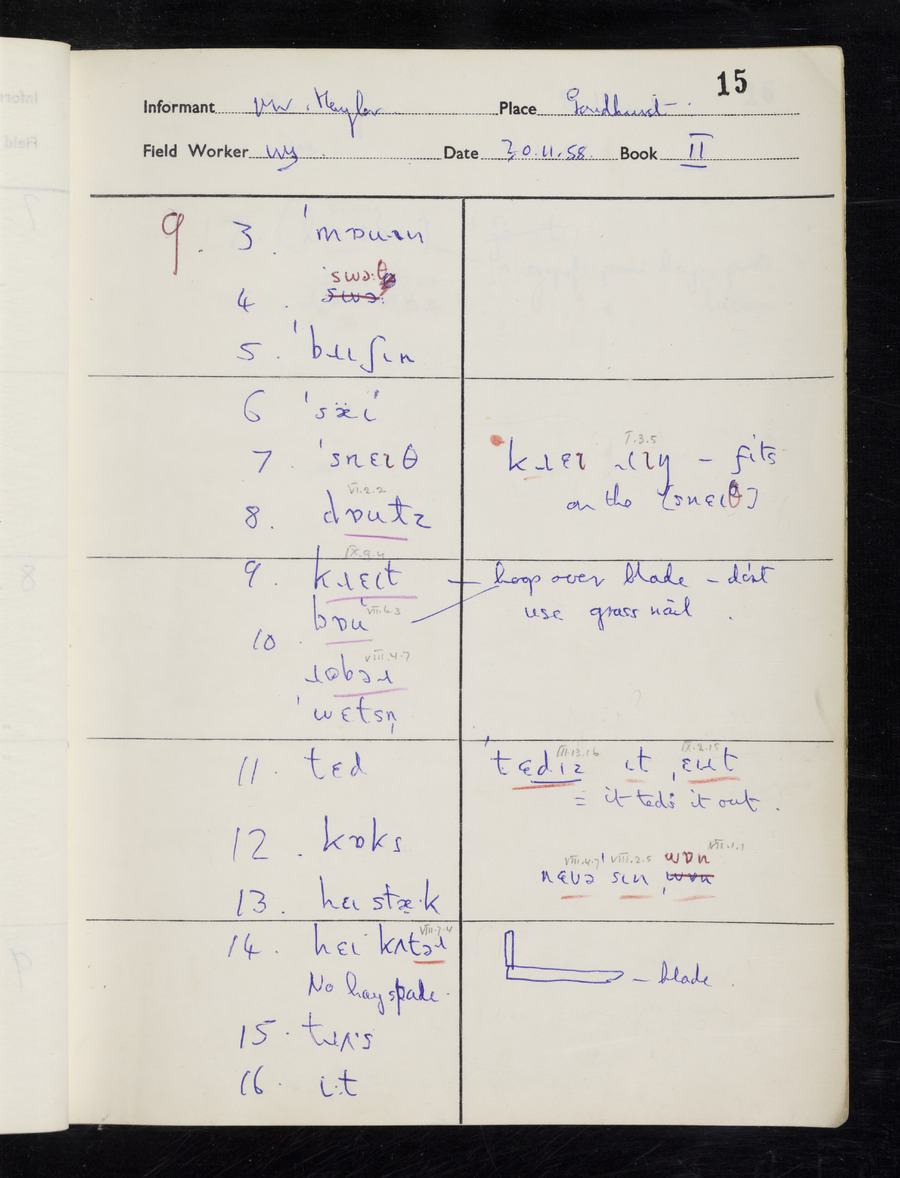 15
Informant Mr. Naylor Place Goudhurst
Field Worker Date 30.11.58. Book II
9. 3. ˈmɒu·ɪn
swə:θ
4.
5. ˈbɹɪʃɪn
6 ˈsæ̈ɪ
7. ˈsnɛɪθ
I.3.5
kɹɛɪ ɹɪŋ – fits
on the [snɛɪθ]
VI.2.2
8. dɒutz
IX.9.4
9. kɹɛɪt hoop over blade – don't
use grass nail.
10. bɒu VII.6.3
VIII.4.7
ɹɒbəɹ
ˈwɛtsn̩
11. tɛd
ˈtɛdɪz VII.13.16 ɪt ˌɛut IX.2.15
= it teds it out.
12. kɒks
VIII.4.7 VIII.2.5 wɒn VII.1.1
nɛvə sɪn
13. hɛɪ stæ·k
14. hɛɪ kʌtəɹ VIII.7.4
No hay spade.
– blade.
15. tɹʌ's
16. i:t